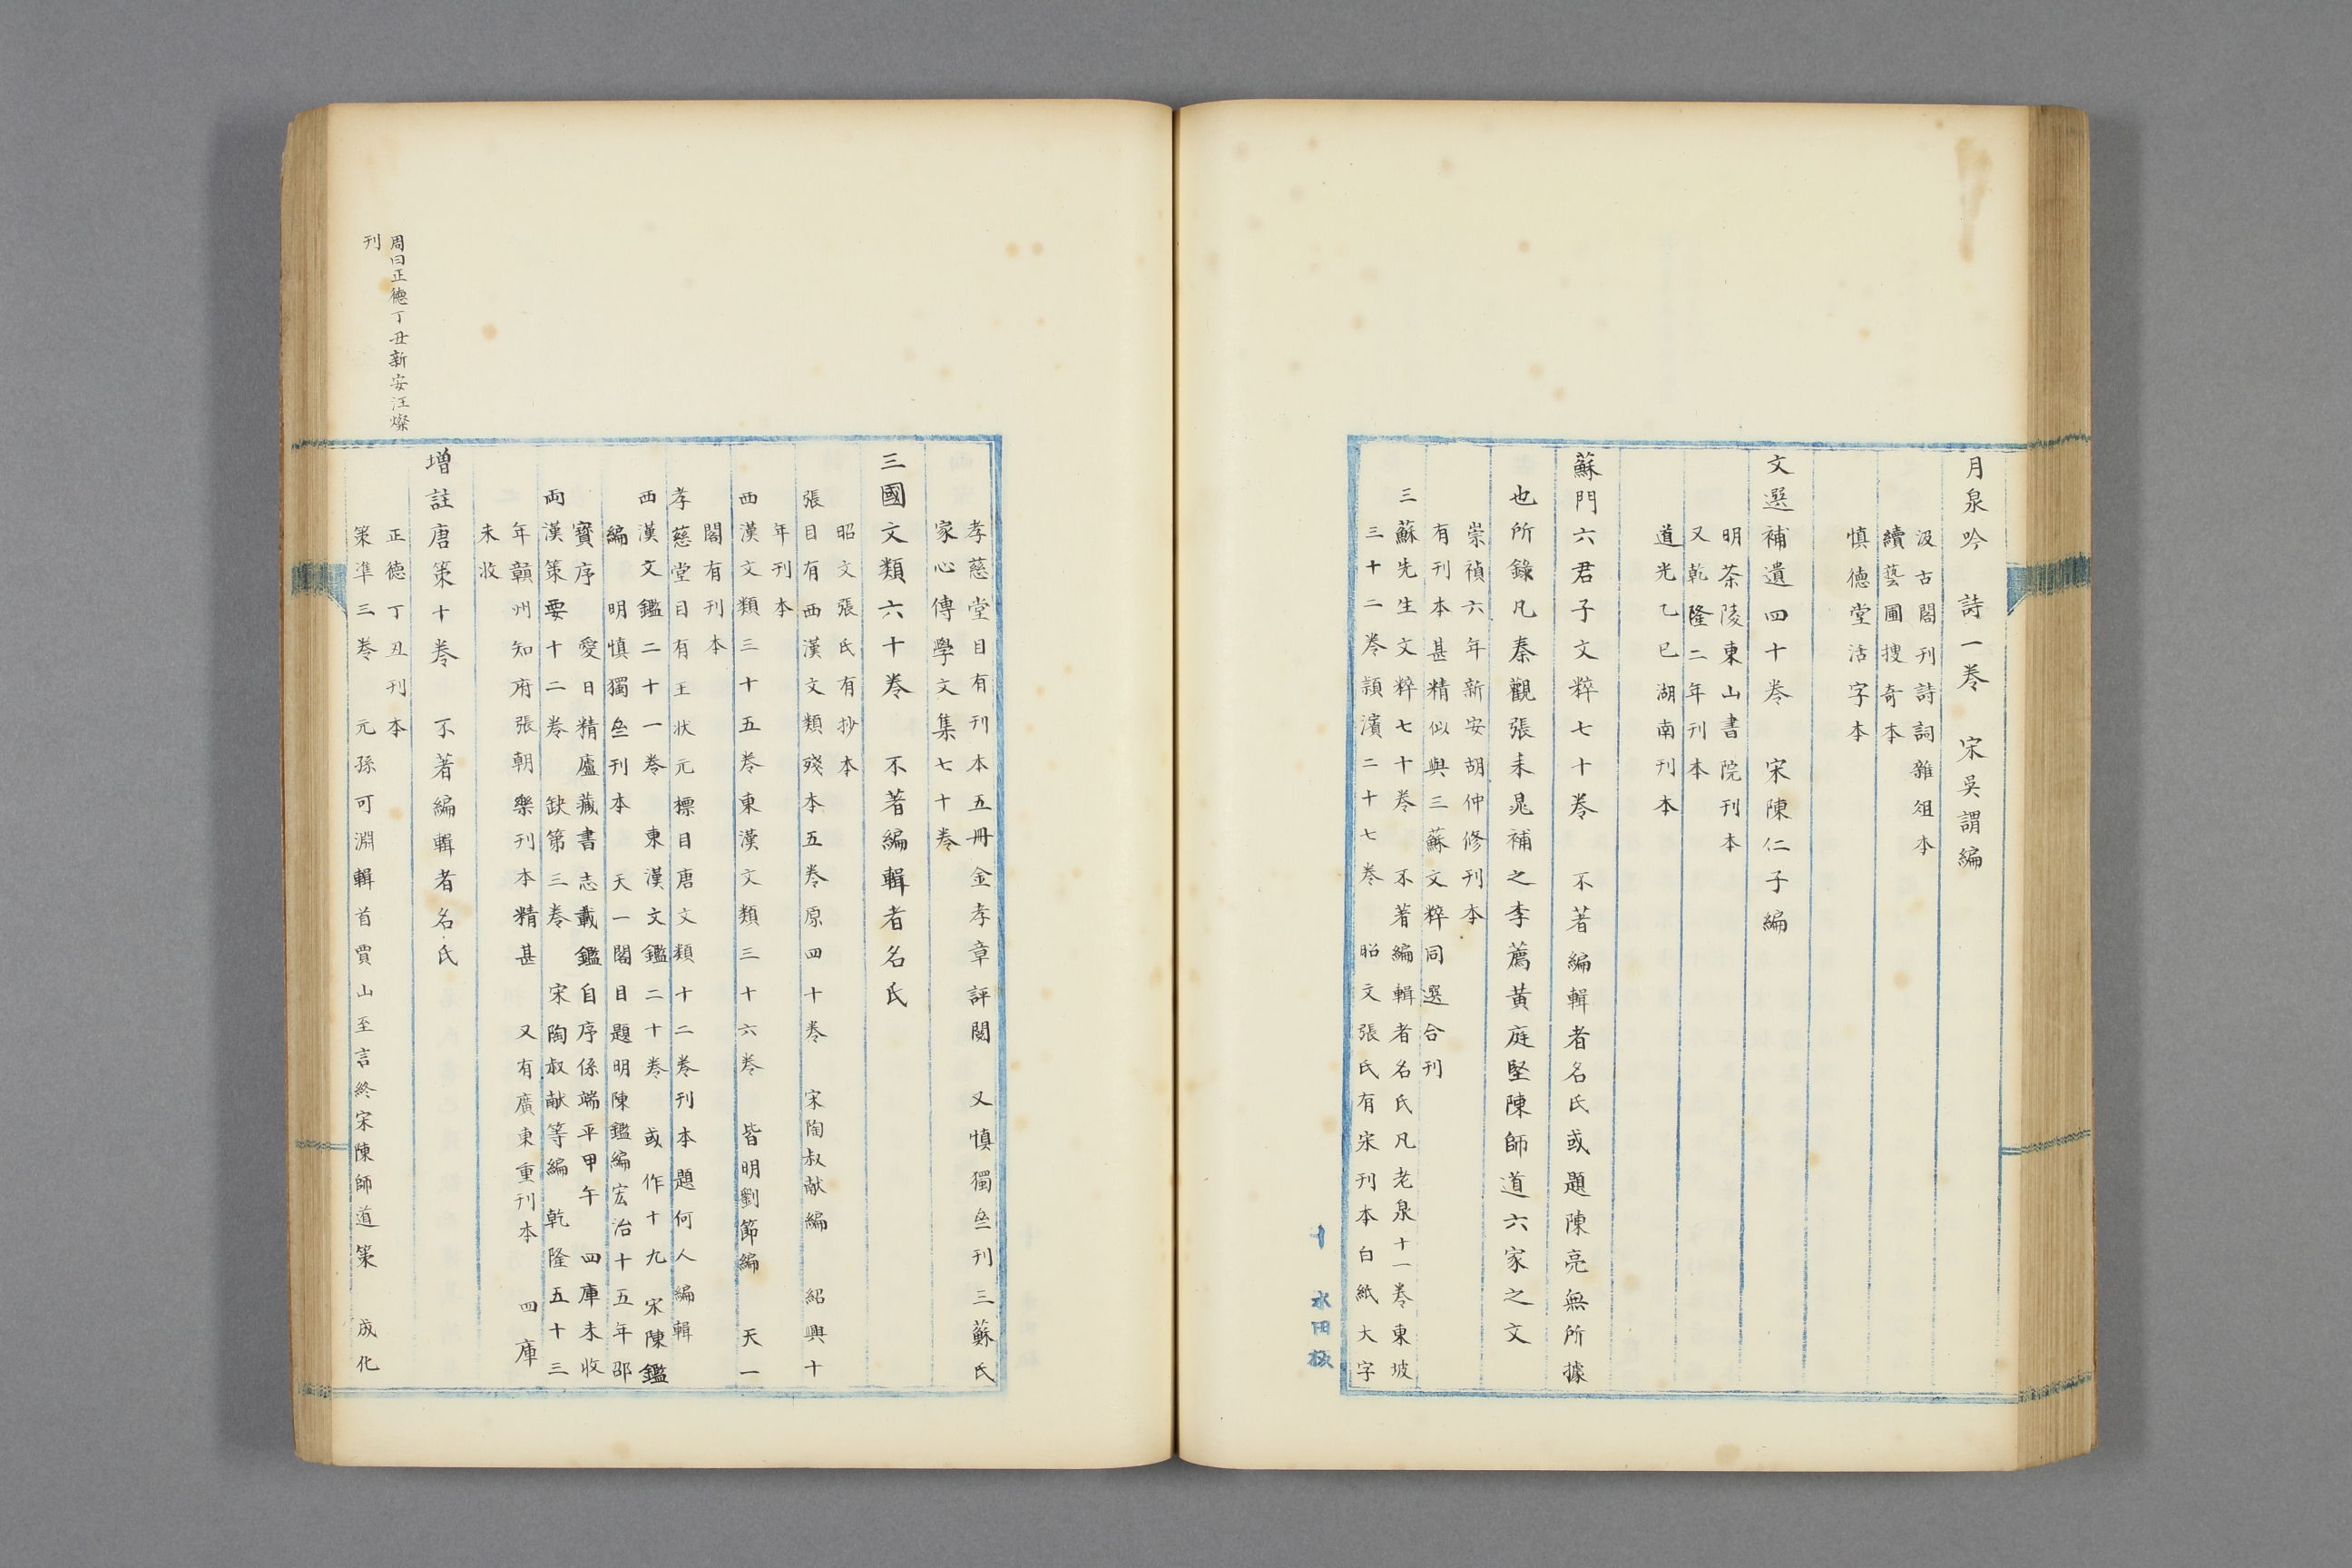 月泉吟詩一卷 宋吳謂編
汲古閣刊詩詞雜俎本
續藝圃搜奇本
慎德堂活字本
文選補遺四十卷 宋陳仁子編
明茶陵東山書院刊本
又乾隆二年刊本
道光乙巳湖南刊本
蘇門六君子文粹七十卷 不著編輯者名氏或題陳亮無所據
也所錄凡秦觀張耒晁補之李薦黃庭堅陳師道六家之文
崇禎六年新安胡仲修刊本
有刊本甚精似與三蘇文粹同選合刊
三蘇先生文粹七十卷 不著編輯者名氏凡老泉十一卷東坡
三十二卷潁濱二十七卷 昭文張氏有宋刊本白紙大字
十 水田板
孝慈堂目有刊本五冊金孝章評閱 又慎獨叁刊三蘇氏
家心傳學文集七十卷
三國文類六十卷 不著編輯者名氏
昭文張氏有抄本
張目有西漢文類殘本五卷原四十卷 宋陶叔献編 紹興十
年刊本
西漢文類三十五卷東漢文類三十六卷 皆明劉節編 天一
閣有刊本
孝慈堂目有王狀元標目唐文類十二卷刊本題何人編輯
西漢文鑑二十一卷 東漢文鑑二十卷 或作十九 宋陳鑑
編 明慎獨叁刊本 天一閣目題明陳鑑編宏治十五年邵
寶序 愛日精廬藏書志載鑑自序係端平甲午 四庫未收
兩漢策要十二卷 缺第三卷 宋陶叔献等編 乾隆五十三
年贛州知府張朝樂刊本精甚 又有廣東重刊本 四庫
未收
增註唐策十卷 不著編輯者名氏
正德丁丑刊本
策準三卷 元孫可淵輯首賈山至言終宋陳師道策 成化
周曰正德丁丑新安汪燦
刊